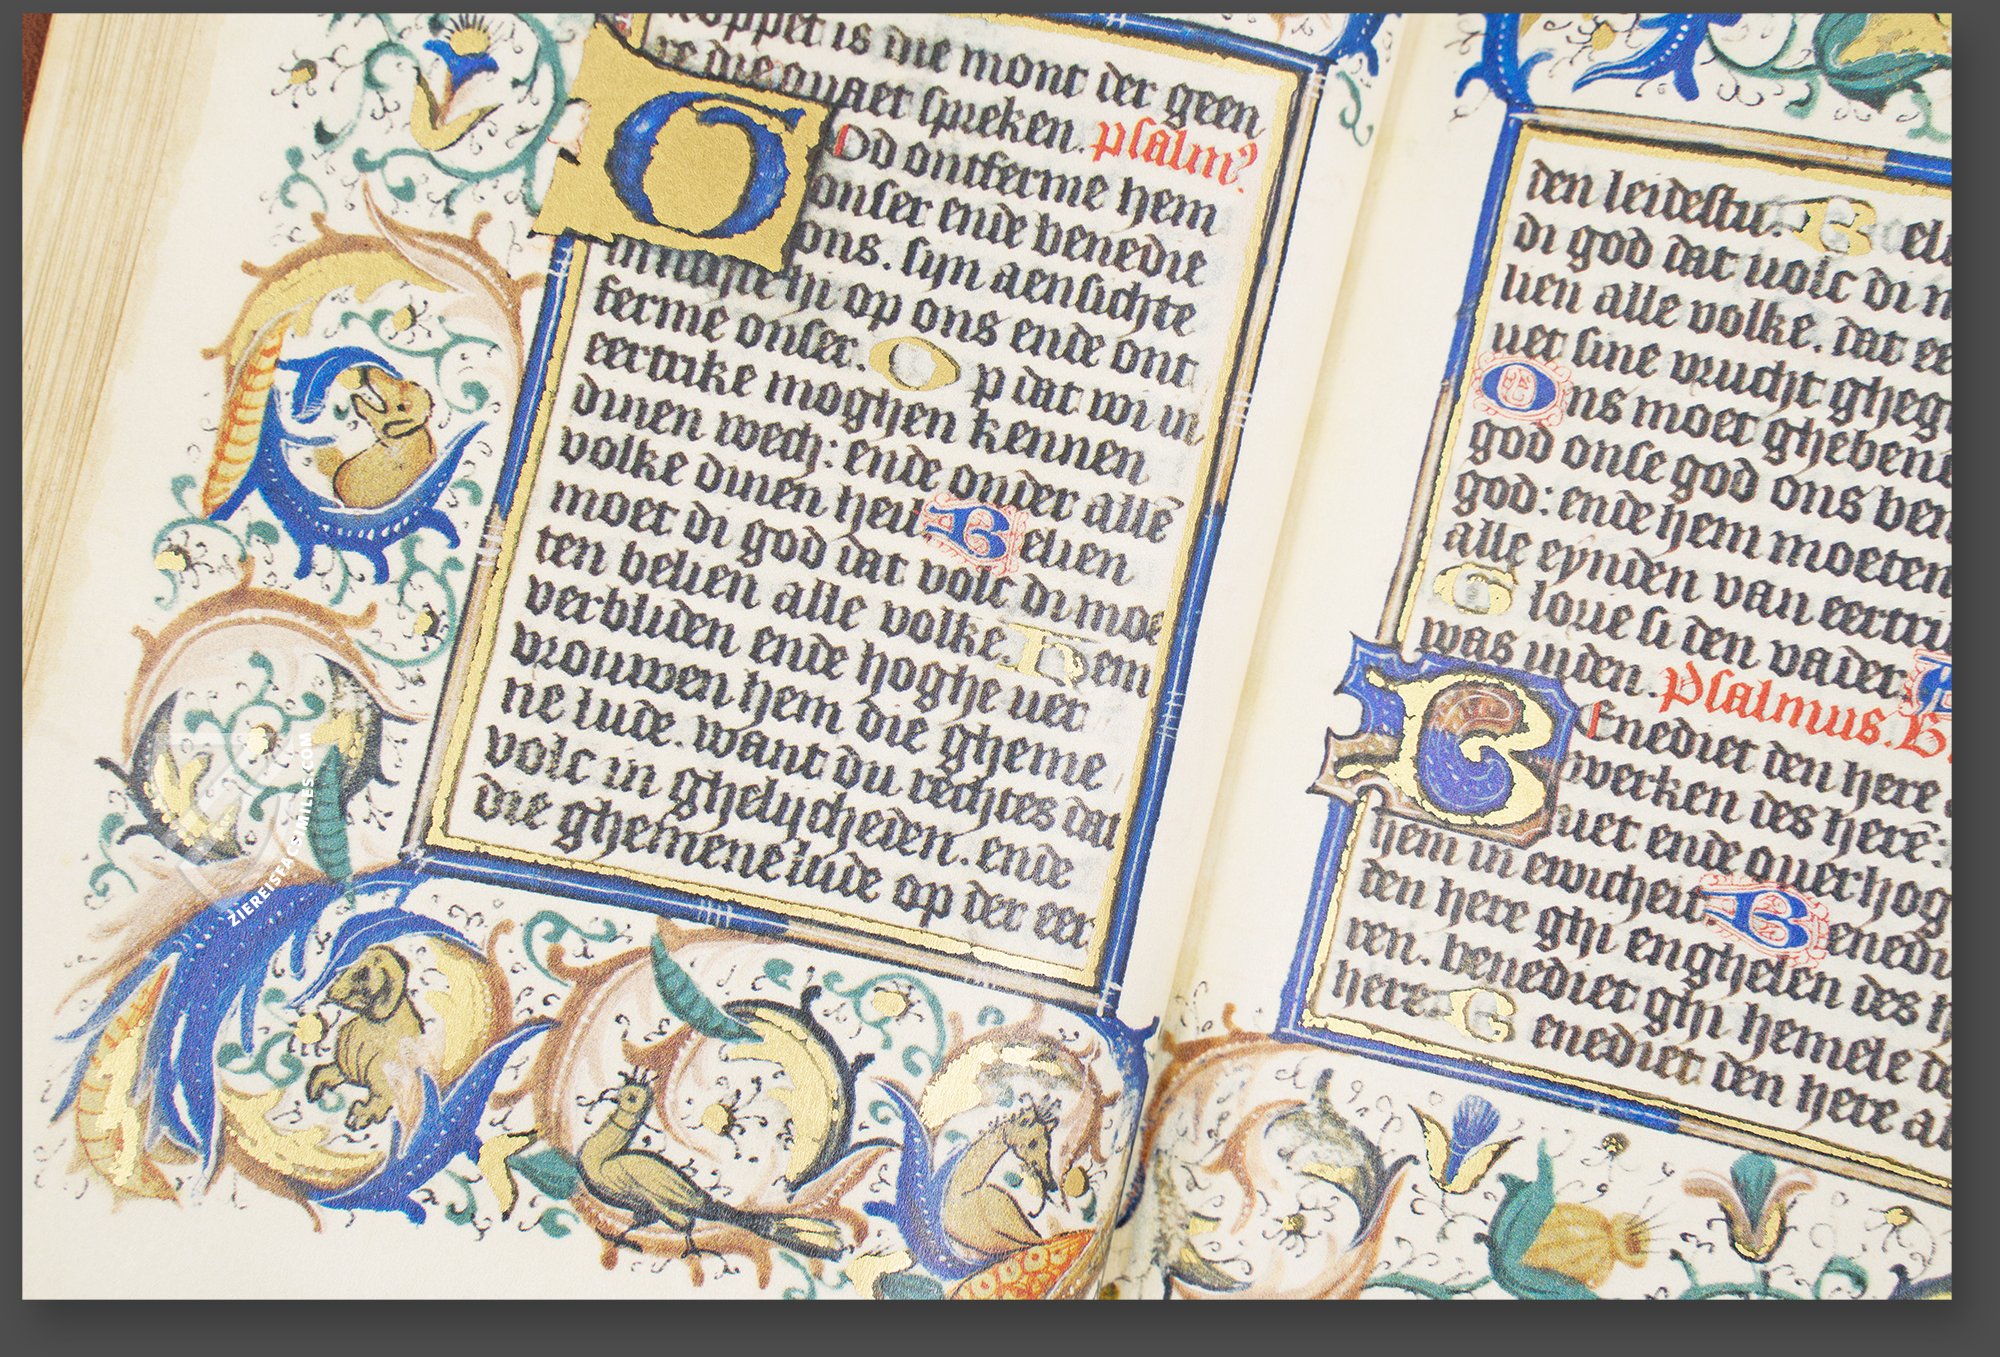 stoppet is die mont der geen
re die quaet spreken. psalm?
God ontferme hem
onser ende benedie
ons. syn aensichte
op ons ende ont
ferme onser. Op dat wi in
eertrike moghen kennen
dinen wech: ende onder alle
volke dinen heil Belien
moet di god dat volc di moe
ten belien alle volke. Hem
verbliden ende hoghe uer
vrouwen hem die gheme
ne lude. want du rechtes dat
volc in ghelycheden. ende
die ghemene lude op der eer
den leidestu. Beli
di god dat volc di m
lien alle volke. dat ee
uet sine vrucht gheg
Ons moet ghebene
god onse god ons ben
god: ende hem moeten
alle eynden van eertri
Glorie si den vader.
was inden. Psalmus. B
Benediet den here
werken des here:
uet ende ouerhog
hem in ewicheit Benedi
den here ghi enghelen des h
ren. benediet ghi hemele de
here Benediet den here al
ZIEREISFACSIMILES.COM